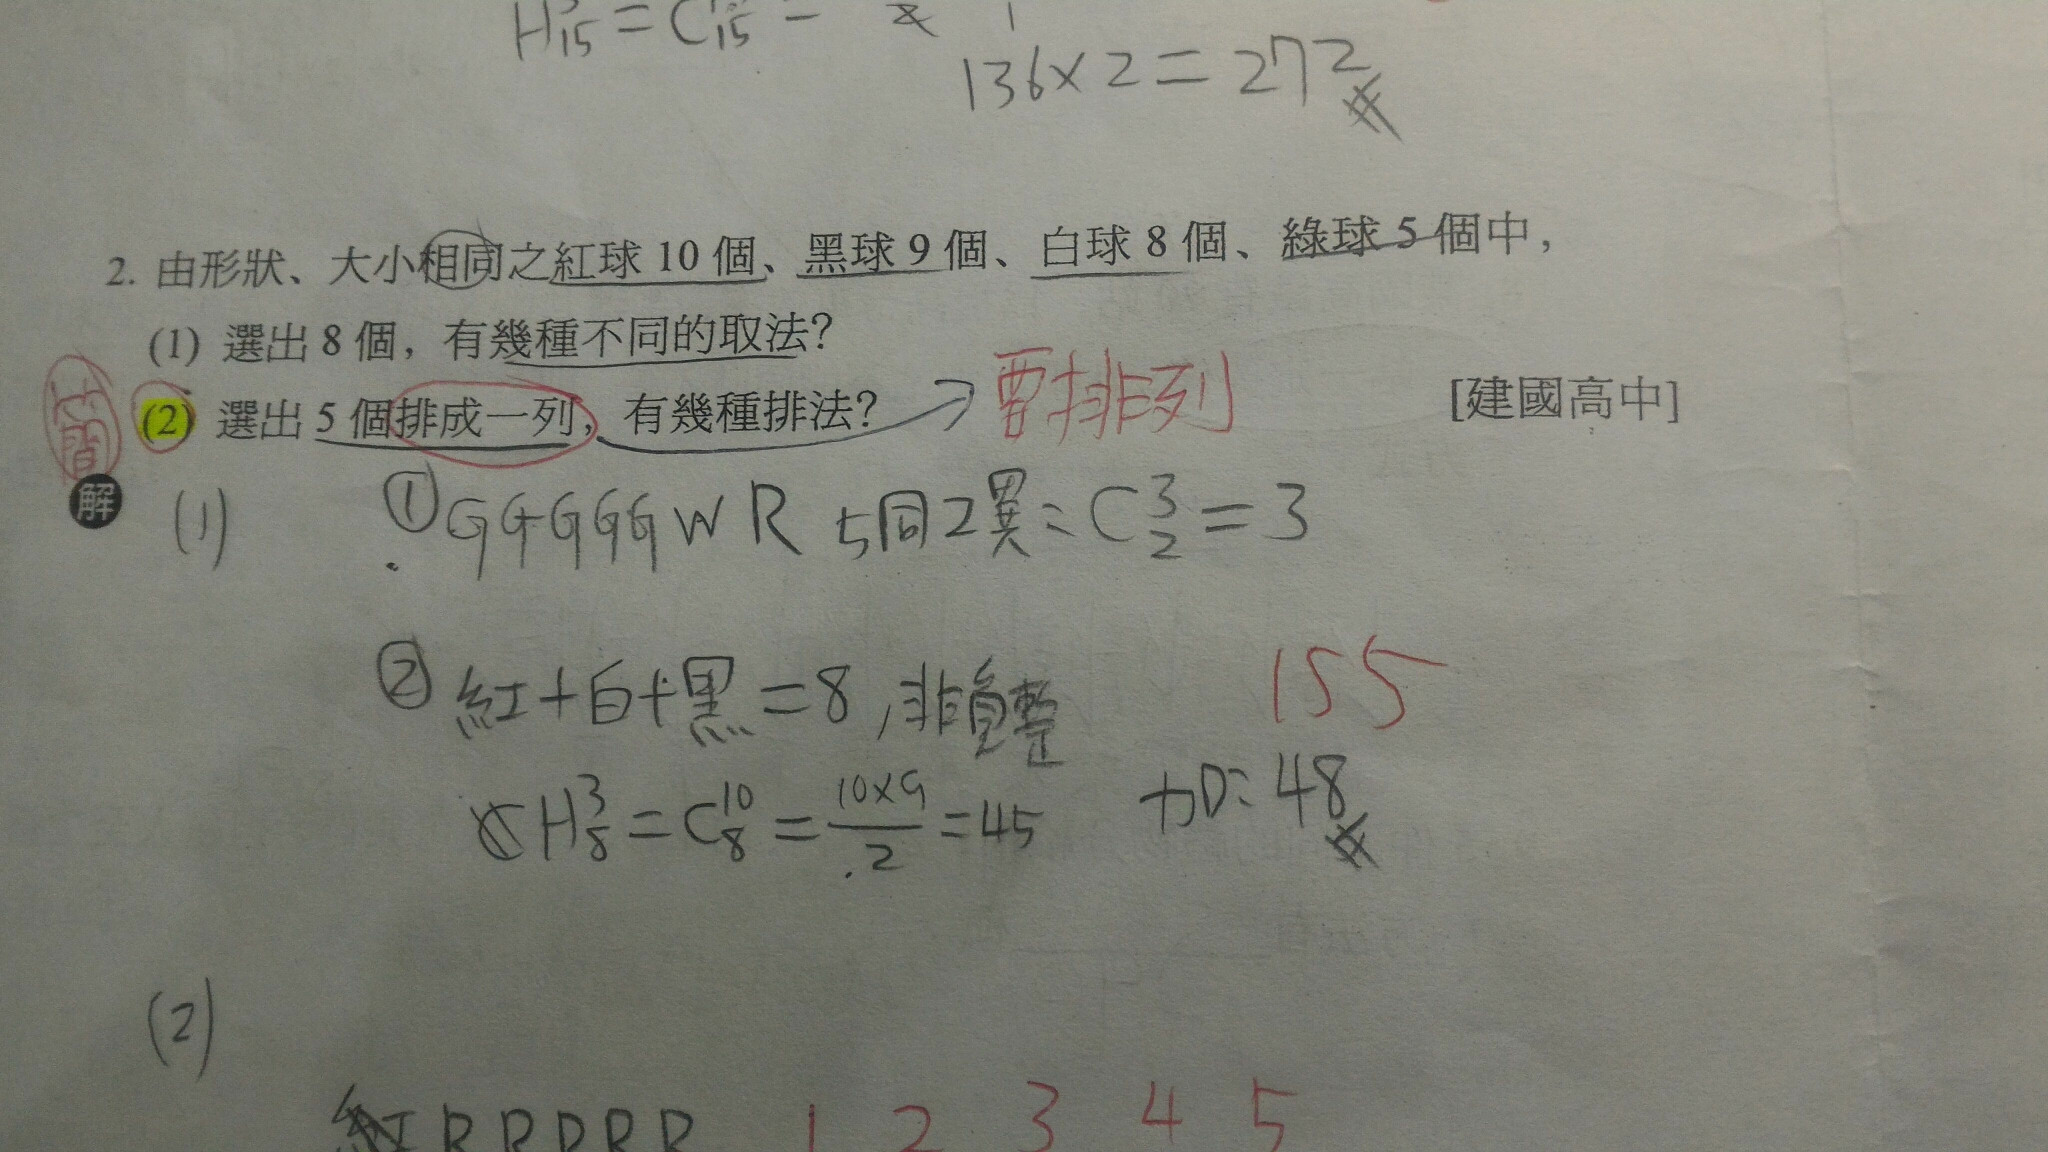 H³₁₅ = C₁₅ =
136×2=272
2. 由形狀、大小相同之紅球 10 個、黑球 9 個、白球 8 個、綠球 5 個中，
(1) 選出 8 個，有幾種不同的取法?
(2) 選出 5 個排成一列，有幾種排法? → 要排列 [建國高中]
簡
解
(1) ① GGGGG W R 5同2異: C³₂ = 3
② 紅+白+黑=8,非負整
155
H³₈ = C¹⁰₈ = 10×9/2 = 45
加: 48
(2)
紅 RRRRR 1 2 3 4 5